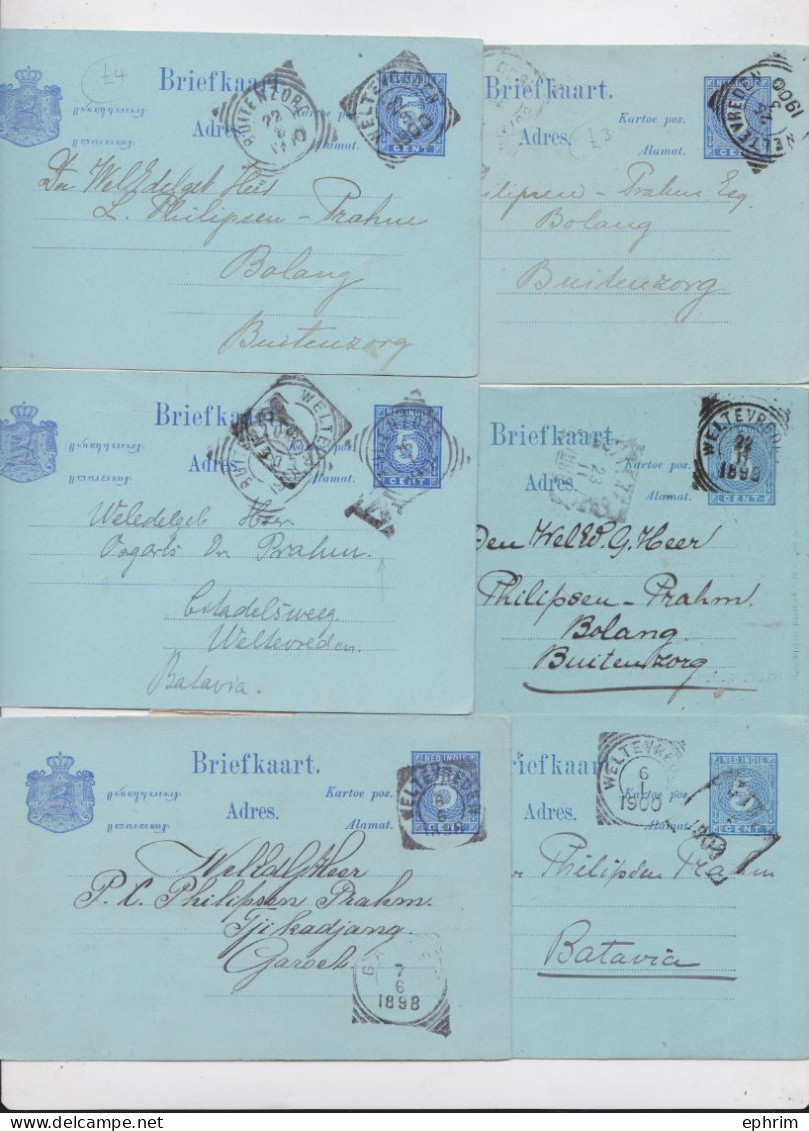 Briefkaart.
Adres.
£4
BUITENZORG
22
WELTEVREDEN
Kartoe pos.
Alamat.
5
CENT
Den WelEdelgeb Heer
L. Philipsen - Prahm
Bolang
Buitenzorg
Briefkaart.
Adres.
£3
Kartoe pos.
Alamat.
WELTEVREDEN
1900
CENT
Philipsen - Prahm Esq.
Bolang
Buitenzorg
Briefkaart
Adres.
Kartoe pos.
Alamat.
5
CENT
Weledelgeb Heer
Prahm.
Citadelsweg
Weltevreden.
Batavia.
Briefkaart.
Adres.
Kartoe pos.
Alamat.
23
11
WELTEVREDEN
22
11
1898
CENT
Den WelEd. G. Heer
Philipsen - Prahm.
Bolang
Buitenzorg
Briefkaart.
Adres.
Kartoe pos.
Alamat.
NED. INDIE
WELTEVREDEN
6
6
CENT
WelEdG Heer
P. C. Philipsen Prahm.
Tjikadjang
Garoet.
7
6
1898
Briefkaart.
Adres.
Kartoe pos.
Alamat.
NED. INDIE
WELTEVREDEN
6
1
1900
CENT
Philipsen Prahm
Batavia
ephrim